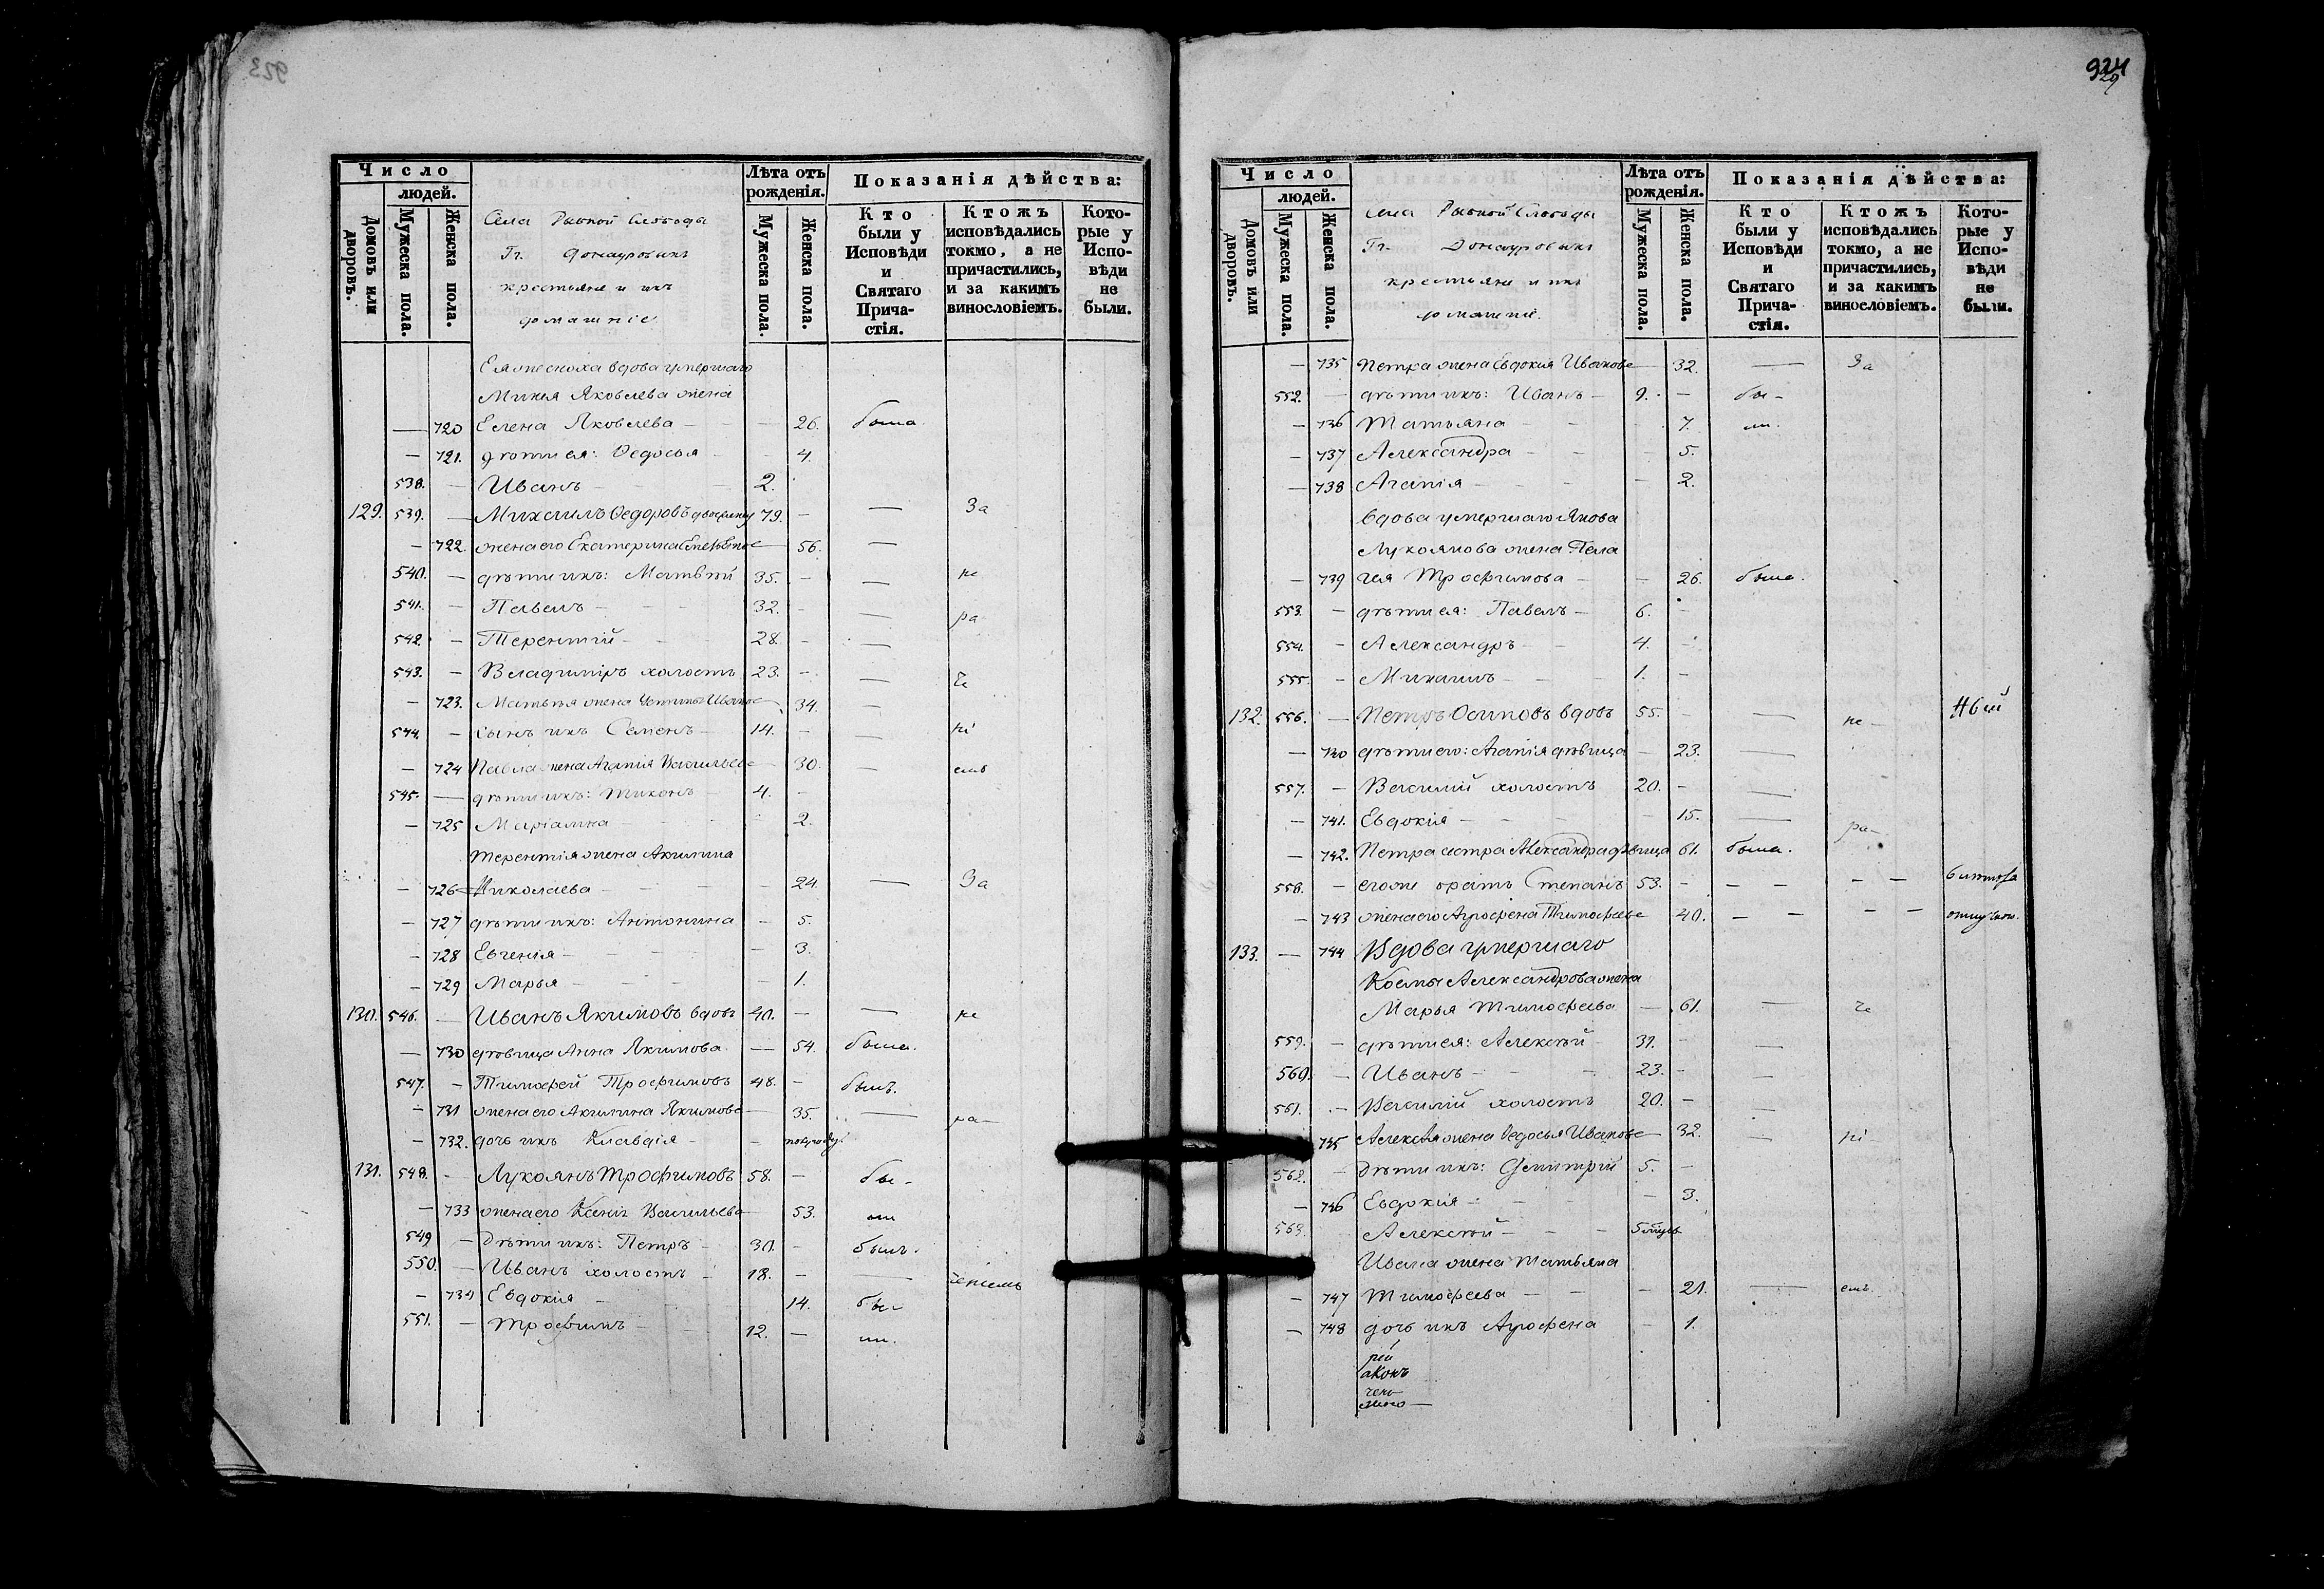 923
Число
людей.
Домовъ или дворовъ.
Мужеска пола.
Женска пола.
Села Рыбной Слободы
Гг. Донауровыхъ
крестьяне и ихъ
домашніе
Лѣта отъ рожденія.
Мужеска пола.
Женска пола.
Показанія дѣйства:
Кто были у Исповѣди и Святаго Прича-стія.
Ктожъ исповѣдались токмо, а не причастились, и за какимъ винословіемъ.
Кото-рые у Испо-вѣди не были.
Ея же сноха вдова умершаго
Яковлева жена
— 720 Елена Яковлева — — 26. была
— 721. дѣти ея: Ѳедосья — — 4.
538. — Иванъ — — 2.
129. 539. — Михаилъ Ѳедоровъ 79. — — За
— 722. жена его Екатерина — 56. —
540. — дѣти ихъ: Матвѣй 35. — — не
541. — Павелъ — — 32. — — ра
542. — Терентій — 28. — —
543. — Владимiръ холостъ 23. — — че
— 723. Матвѣя жена Иванова — 34. —
544. — сынъ ихъ Семенъ — 14. — — ні
— 724 Павла жена Агапія Васильева — 30. — емъ
545. — дѣти ихъ: Тихонъ — 4. —
— 725 Маріамна — — 2.
Терентія жена Акилина
— 726 Николаева — — 24. — За
— 727 дѣти ихъ: Антонина — 5.
— 728 Евгенія — — 3.
— 729 Марья — — 1.
130. 546. — Иванъ Якимовъ вдовъ 40. — — не
— 730 дѣвица Анна Якимова — 54. была.
547. — Тимофей Трофимовъ 48. — былъ.
— 731 жена его Акилина Якимова — 35. — ра—
— 732. дочь ихъ Клавдія — — полугоду
131. 548. — Лукоянъ Трофимовъ 58. — бы-
— 733 жена его Васильева — 53. ли
549 — Дѣти ихъ: Петръ — 30. — былъ.
550. — Иванъ холостъ — 18. — — ченіемъ
— 734 Евдокія — 14. бы-
551. — Трофимъ — 12. — ли.
924
29
Число
людей.
Домовъ или дворовъ.
Мужеска пола.
Женска пола.
Села Рыбной Слободы
Гг. Донауровыхъ
крестьяне и ихъ
домашніе.
Лѣта отъ рожденія.
Мужеска пола.
Женска пола.
Показанія дѣйства:
Кто были у Исповѣди и Святаго Прича-стія.
Ктожъ исповѣдались токмо, а не причастились, и за какимъ винословіемъ.
Кото-рые у Испо-вѣди не были.
— 735 Петра жена Евдокия Иванова — 32. — За
552. — дѣти ихъ: Иванъ — 9. — бы-
— 736 Татьяна — — 7. ли.
— 737 Александра — — 5.
— 738 Агапія — — 2.
вдова умершаго Якова
Лукоянова жена Пела
— 739 гея Трофимова — — 26. была.
553. — дѣти ея: Павелъ — 6. —
554. — Александръ — 4. —
555. — Михаилъ — 1. —
132. 556. — Петръ Осиповъ вдовъ 55. — — не —
— 740 дѣти его: Агапія дѣвица — 23. —
557. — Василій холостъ 20. — —
— 741. Евдокія — — 15. — ра—
— 742. Петра сестра Александра дѣвица 61. была.
558. — его же братъ Степанъ 53. — — — — —
— 743 жена его Агрофена Тимофеева — 40. — — — —
133. — 744 Вдова умершаго
Космы Александрова жена
Марья Тимофеева — 61. — че
559. — дѣти ея: Алексѣй — 31. — —
560. — Иванъ — — 23. — —
561. — Василій холостъ 20. — —
745 Алексѣя жена Ѳедосья Иванова — 32. — ні
562. — Дѣти ихъ: Димитрій 5. —
— 746 Евдокія — — 3.
563. Алексѣй — —
Ивана жена Татьяна
— 747 Тимофеева — — 21. — емъ.
— 748 дочь ихъ Агрофена — 1.
рей
аконъ